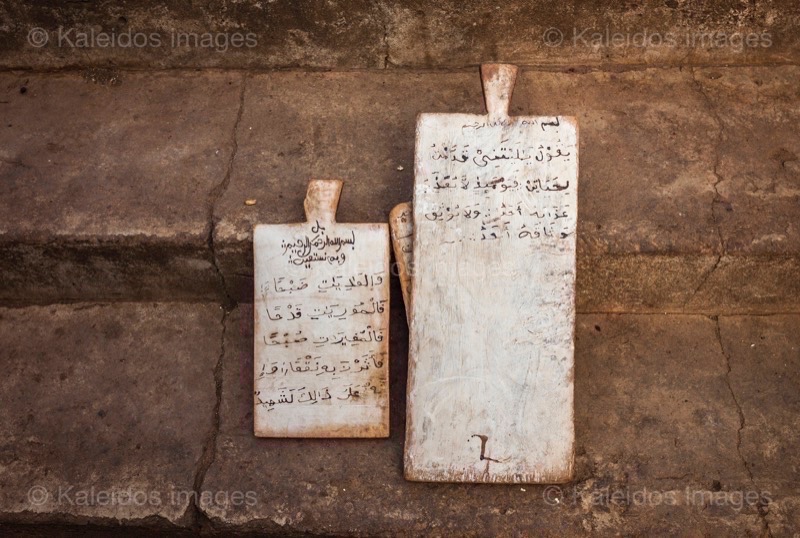 © Kaleidos images
© Kaleidos images
بسم الله الرحمن الرحيم
وبه نستعين
وَالعَٰدِيَٰتِ ضَبْحًا
فَالْمُورِيَٰتِ قَدْحًا
فَالْمُغِيرَٰتِ صُبْحًا
فَأَثَرْنَ بِهِ نَقْعًا
عَلَىٰ ذَٰلِكَ لَشَهِيدٌ
بسم الله الرحمن الرحيم
يَقُولُ يَٰلَيْتَنِي قَدَّمْتُ
لِحَيَاتِي فَيَوْمَئِذٍ لَّا يُعَذِّ
عَذَابَهُ أَحَدٌ وَلَا يُوثِقُ
وَثَاقَهُ أَحَدٌ
© Kaleidos images
© Kaleidos images